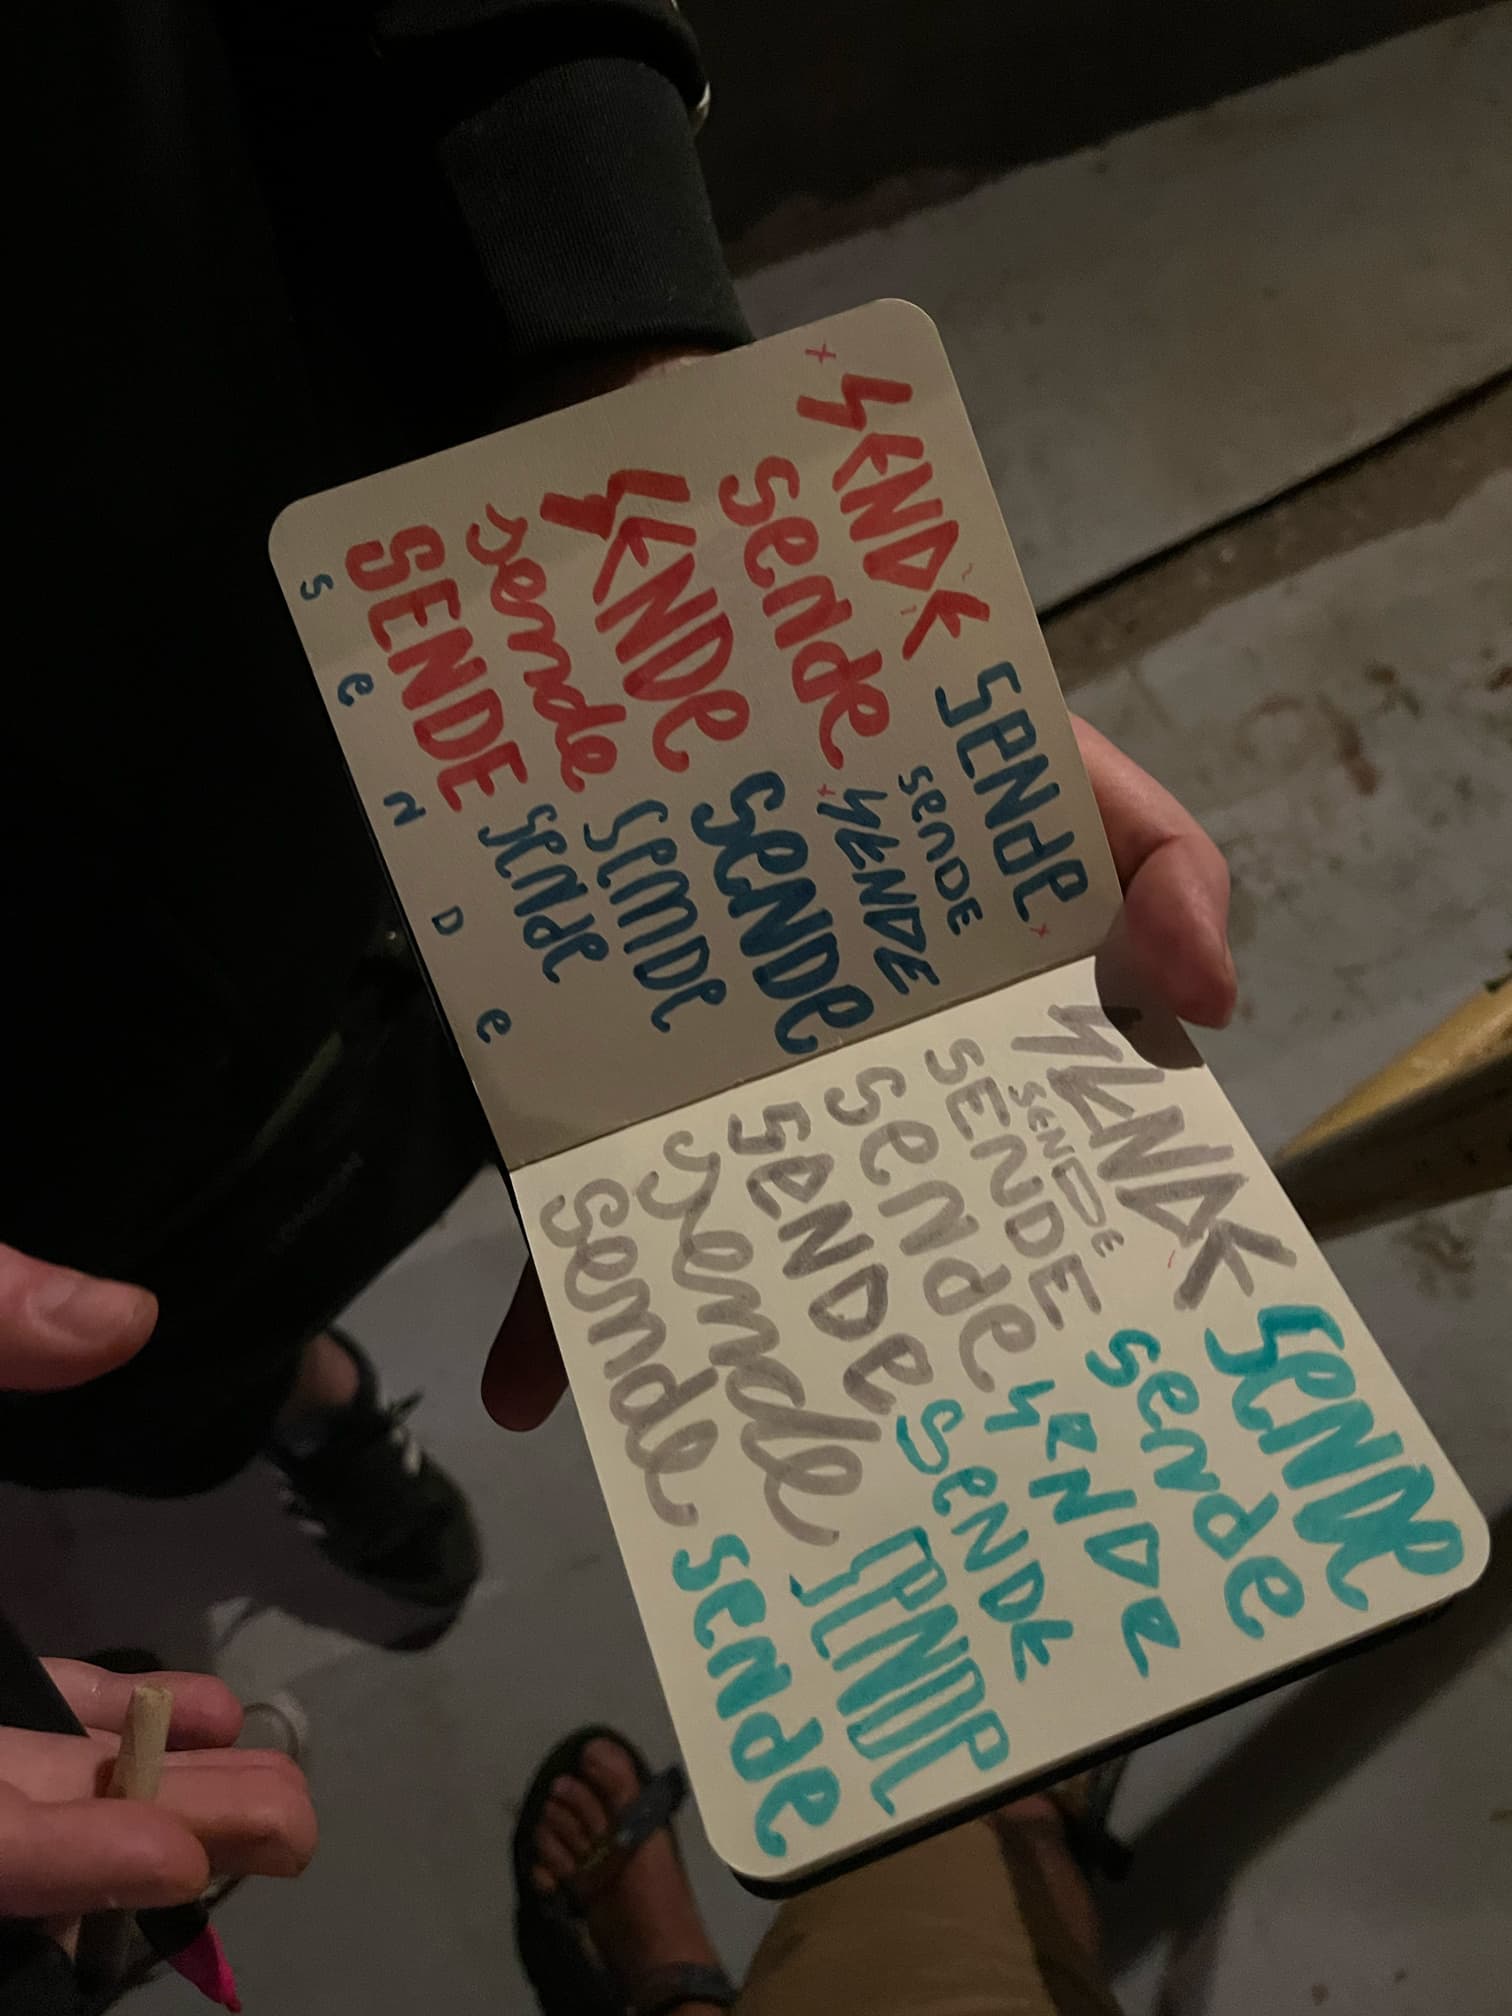 SENDE
sende
SENDe
sende
SENDE
SeNde
senDE
SENDE
SeNDe
SemDe
SeNde
S e N D e
SENDE
SeNDE
SENDE
sende
SeNDe
sende
sende
SeNDe
sende
SeNDe
SeNDE
SeNDe
seNde